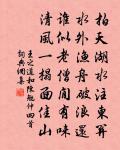 拍天湖水注東
水外漁舟破浪還
誰似老僧閒有味
清風一榻面佳山
王之道和陳勉仲四首
詞典網集